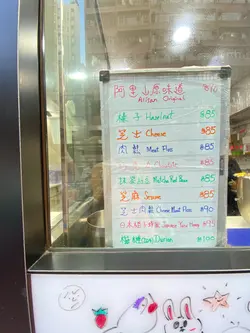 阿里山原味道
Alisan Original
榛子 Hazelnut $85
芝士 Cheese $85
肉鬆 Meat Floss $85
$85
抹茶紅豆 Matcha Red Bean $85
芝麻 Sesame $85
芝士肉鬆 Cheese Meat Floss $90
榴槤 Durian $100